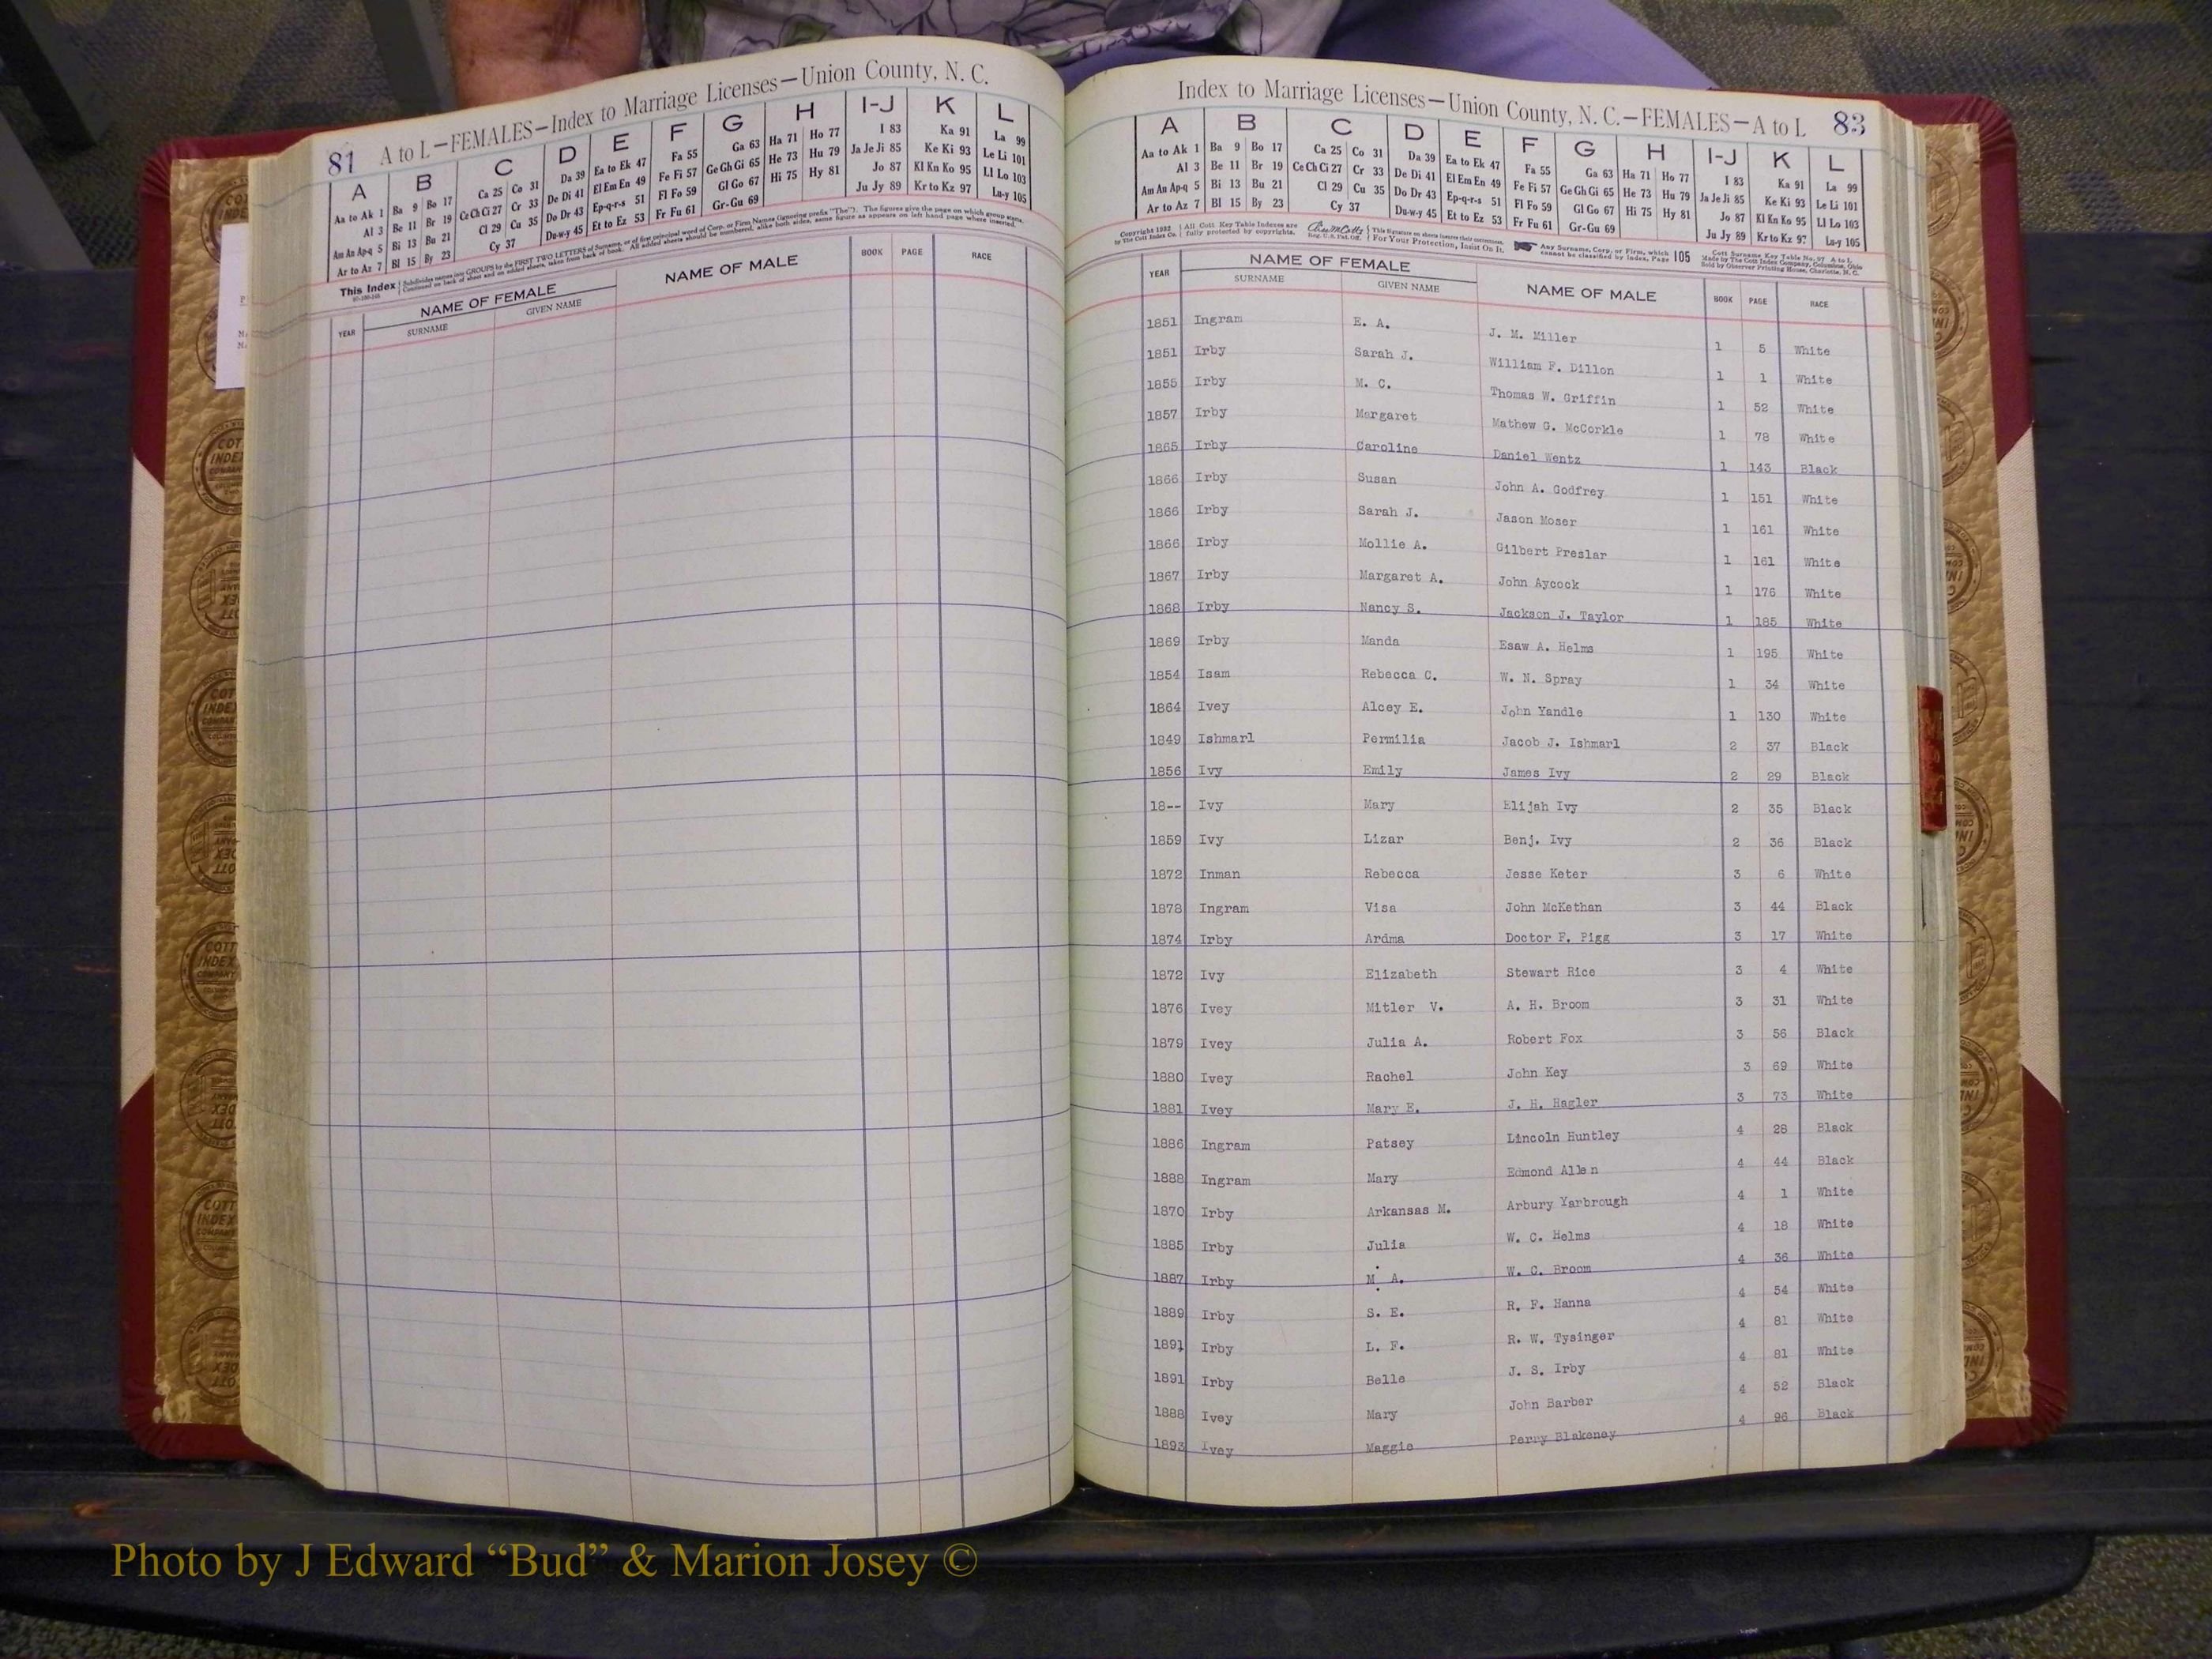 81 A to L—FEMALES—Index to Marriage Licenses—Union County, N. C.
A B C D E F G H I-J K L
Aa to Ak 1 Ba 9 Bo 17 Ca 25 Co 31 Da 39 Ea to Ek 47 Fa 55 Ga 63 Ha 71 Ho 77 I 83 Ka 91 La 99
Al 3 Be 11 Br 19 Ce Ch Ci 27 Cr 33 De Di 41 El Em En 49 Fe Fi 57 Ge Gh Gi 65 He 73 Hu 79 Ja Je Ji 85 Ke Ki 93 Le Li 101
Am An Ap-q 5 Bi 13 Bu 21 Cl 29 Cu 35 Do Dr 43 Ep-q-r-s 51 Fl Fo 59 Gl Go 67 Hi 75 Hy 81 Jo 87 Kl Kn Ko 95 Ll Lo 103
Ar to Az 7 Bl 15 By 23 Cy 37 Du-w-y 45 Et to Ez 53 Fr Fu 61 Gr-Gu 69 Ju Jy 89 Kr to Kz 97 Lu-y 105
This Index Subdivides names into GROUPS by the FIRST TWO LETTERS of Surname, or of first principal word of Corp. or Firm Names (ignoring prefix "The"). The figures give the page on which group starts.
Continued on back of sheet and on added sheets, taken from back of book. All added sheets should be numbered, alike both sides, same figure as appears on left hand page where inserted.
YEAR NAME OF FEMALE NAME OF MALE BOOK PAGE RACE
SURNAME GIVEN NAME
Index to Marriage Licenses—Union County, N. C.—FEMALES—A to L 83
A B C D E F G H I-J K L
Aa to Ak 1 Ba 9 Bo 17 Ca 25 Co 31 Da 39 Ea to Ek 47 Fa 55 Ga 63 Ha 71 Ho 77 I 83 Ka 91 La 99
Al 3 Be 11 Br 19 Ce Ch Ci 27 Cr 33 De Di 41 El Em En 49 Fe Fi 57 Ge Gh Gi 65 He 73 Hu 79 Ja Je Ji 85 Ke Ki 93 Le Li 101
Am An Ap-q 5 Bi 13 Bu 21 Cl 29 Cu 35 Do Dr 43 Ep-q-r-s 51 Fl Fo 59 Gl Go 67 Hi 75 Hy 81 Jo 87 Kl Kn Ko 95 Ll Lo 103
Ar to Az 7 Bl 15 By 23 Cy 37 Du-w-y 45 Et to Ez 53 Fr Fu 61 Gr-Gu 69 Ju Jy 89 Kr to Kz 97 Lu-y 105
Copyright 1932 All Cott Key Table Indexes are This signature on sheets insures their correctness. Any Surname, Corp. or Firm, which Cott Surname Key Table No. 97 A to L
by The Cott Index Co. fully protected by copyrights. Reg. U. S. Pat. Off. For Your Protection, Insist On It. cannot be classified by Index, Page 105 Made by The Cott Index Company, Columbus, Ohio
Sold by Observer Printing House, Charlotte, N. C.
YEAR NAME OF FEMALE NAME OF MALE BOOK PAGE RACE
SURNAME GIVEN NAME
1851 Ingram E. A. J. M. Miller 1 5 White
1851 Irby Sarah J. William F. Dillon 1 1 White
1855 Irby M. C. Thomas W. Griffin 1 52 White
1857 Irby Margaret Mathew G. McCorkle 1 78 White
1865 Irby Caroline Daniel Wentz 1 143 Black
1866 Irby Susan John A. Godfrey 1 151 White
1866 Irby Sarah J. Jason Moser 1 161 White
1866 Irby Mollie A. Gilbert Preslar 1 161 White
1867 Irby Margaret A. John Aycock 1 176 White
1868 Irby Nancy S. Jackson J. Taylor 1 185 White
1869 Irby Manda Esaw A. Helms 1 195 White
1854 Isam Rebecca C. W. N. Spray 1 34 White
1864 Ivey Alcey E. John Yandle 1 130 White
1849 Ishmarl Permilia Jacob J. Ishmarl 2 37 Black
1856 Ivy Emily James Ivy 2 29 Black
18-- Ivy Mary Elijah Ivy 2 35 Black
1859 Ivy Lizar Benj. Ivy 2 36 Black
1872 Inman Rebecca Jesse Keter 3 6 White
1878 Ingram Visa John McKethan 3 44 Black
1874 Irby Ardma Doctor F. Pigg 3 17 White
1872 Ivy Elizabeth Stewart Rice 3 4 White
1876 Ivey Mitler V. A. H. Broom 3 31 White
1879 Ivey Julia A. Robert Fox 3 56 Black
1880 Ivey Rachel John Key 3 69 White
1881 Ivey Mary E. J. H. Hagler 3 73 White
1886 Ingram Patsey Lincoln Huntley 4 28 Black
1888 Ingram Mary Edmond Allen 4 44 Black
1870 Irby Arkansas M. Arbury Yarbrough 4 1 White
1885 Irby Julia W. C. Helms 4 18 White
1887 Irby M. A. W. C. Broom 4 36 White
1889 Irby S. E. R. F. Hanna 4 54 White
1891 Irby L. F. R. W. Tysinger 4 81 White
1891 Irby Belle J. S. Irby 4 81 White
1888 Ivey Mary John Barber 4 52 Black
1893 Ivey Maggie Perry Blakeney 4 96 Black
Photo by J Edward “Bud” & Marion Josey ©